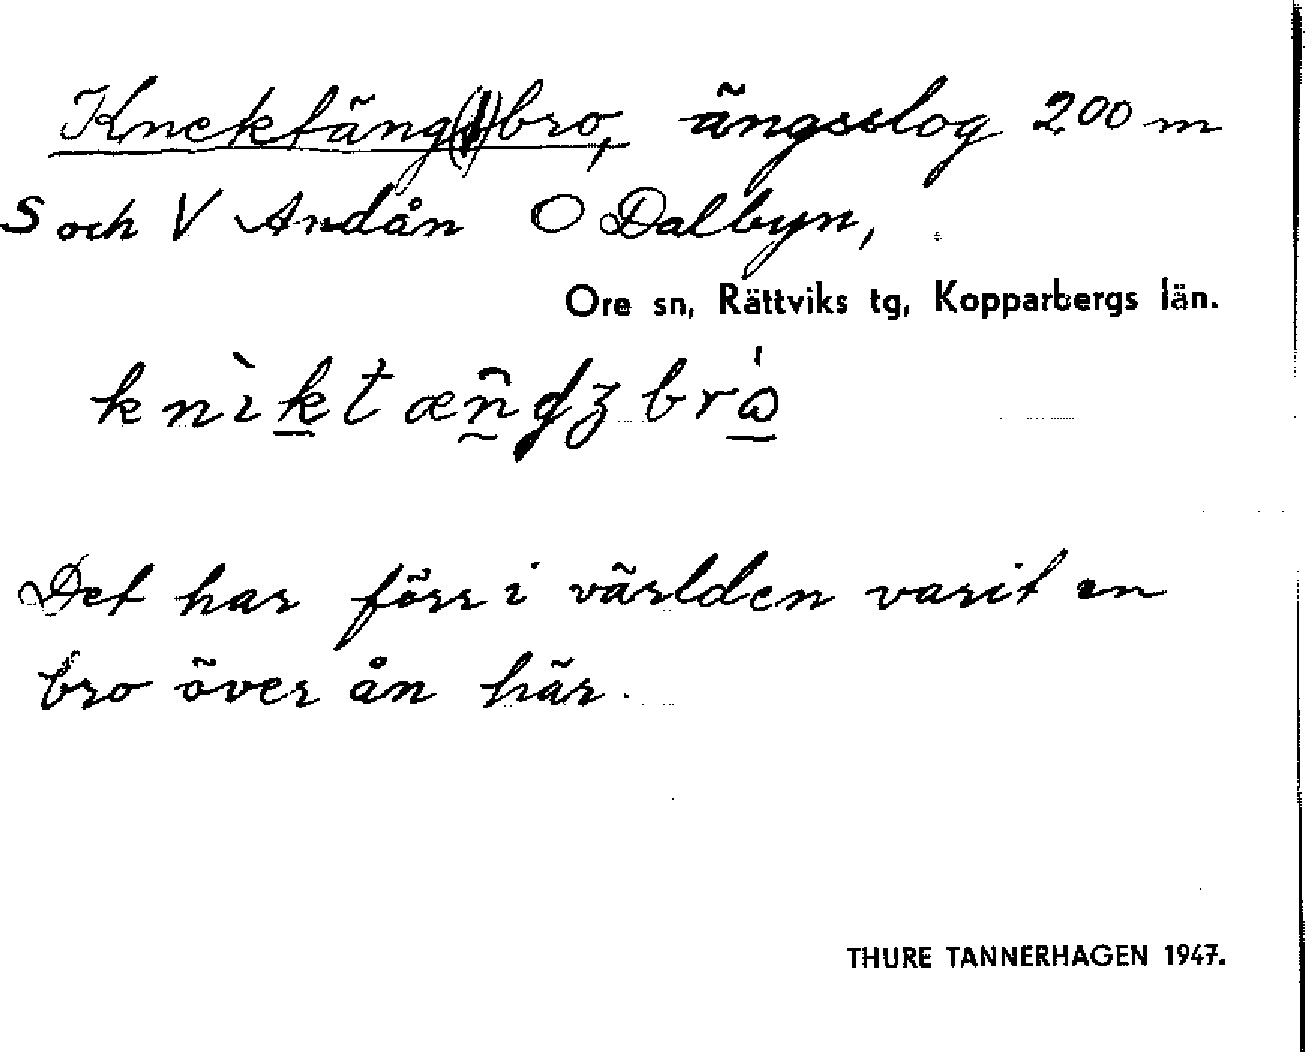 Knektäng(s)bro, ängsslog 200 m
S och V Andån O Dalbyn,
Ore sn, Rättviks tg, Kopparbergs län.
Det har förr i världen varit en
bro över ån här.
THURE TANNERHAGEN 1947.